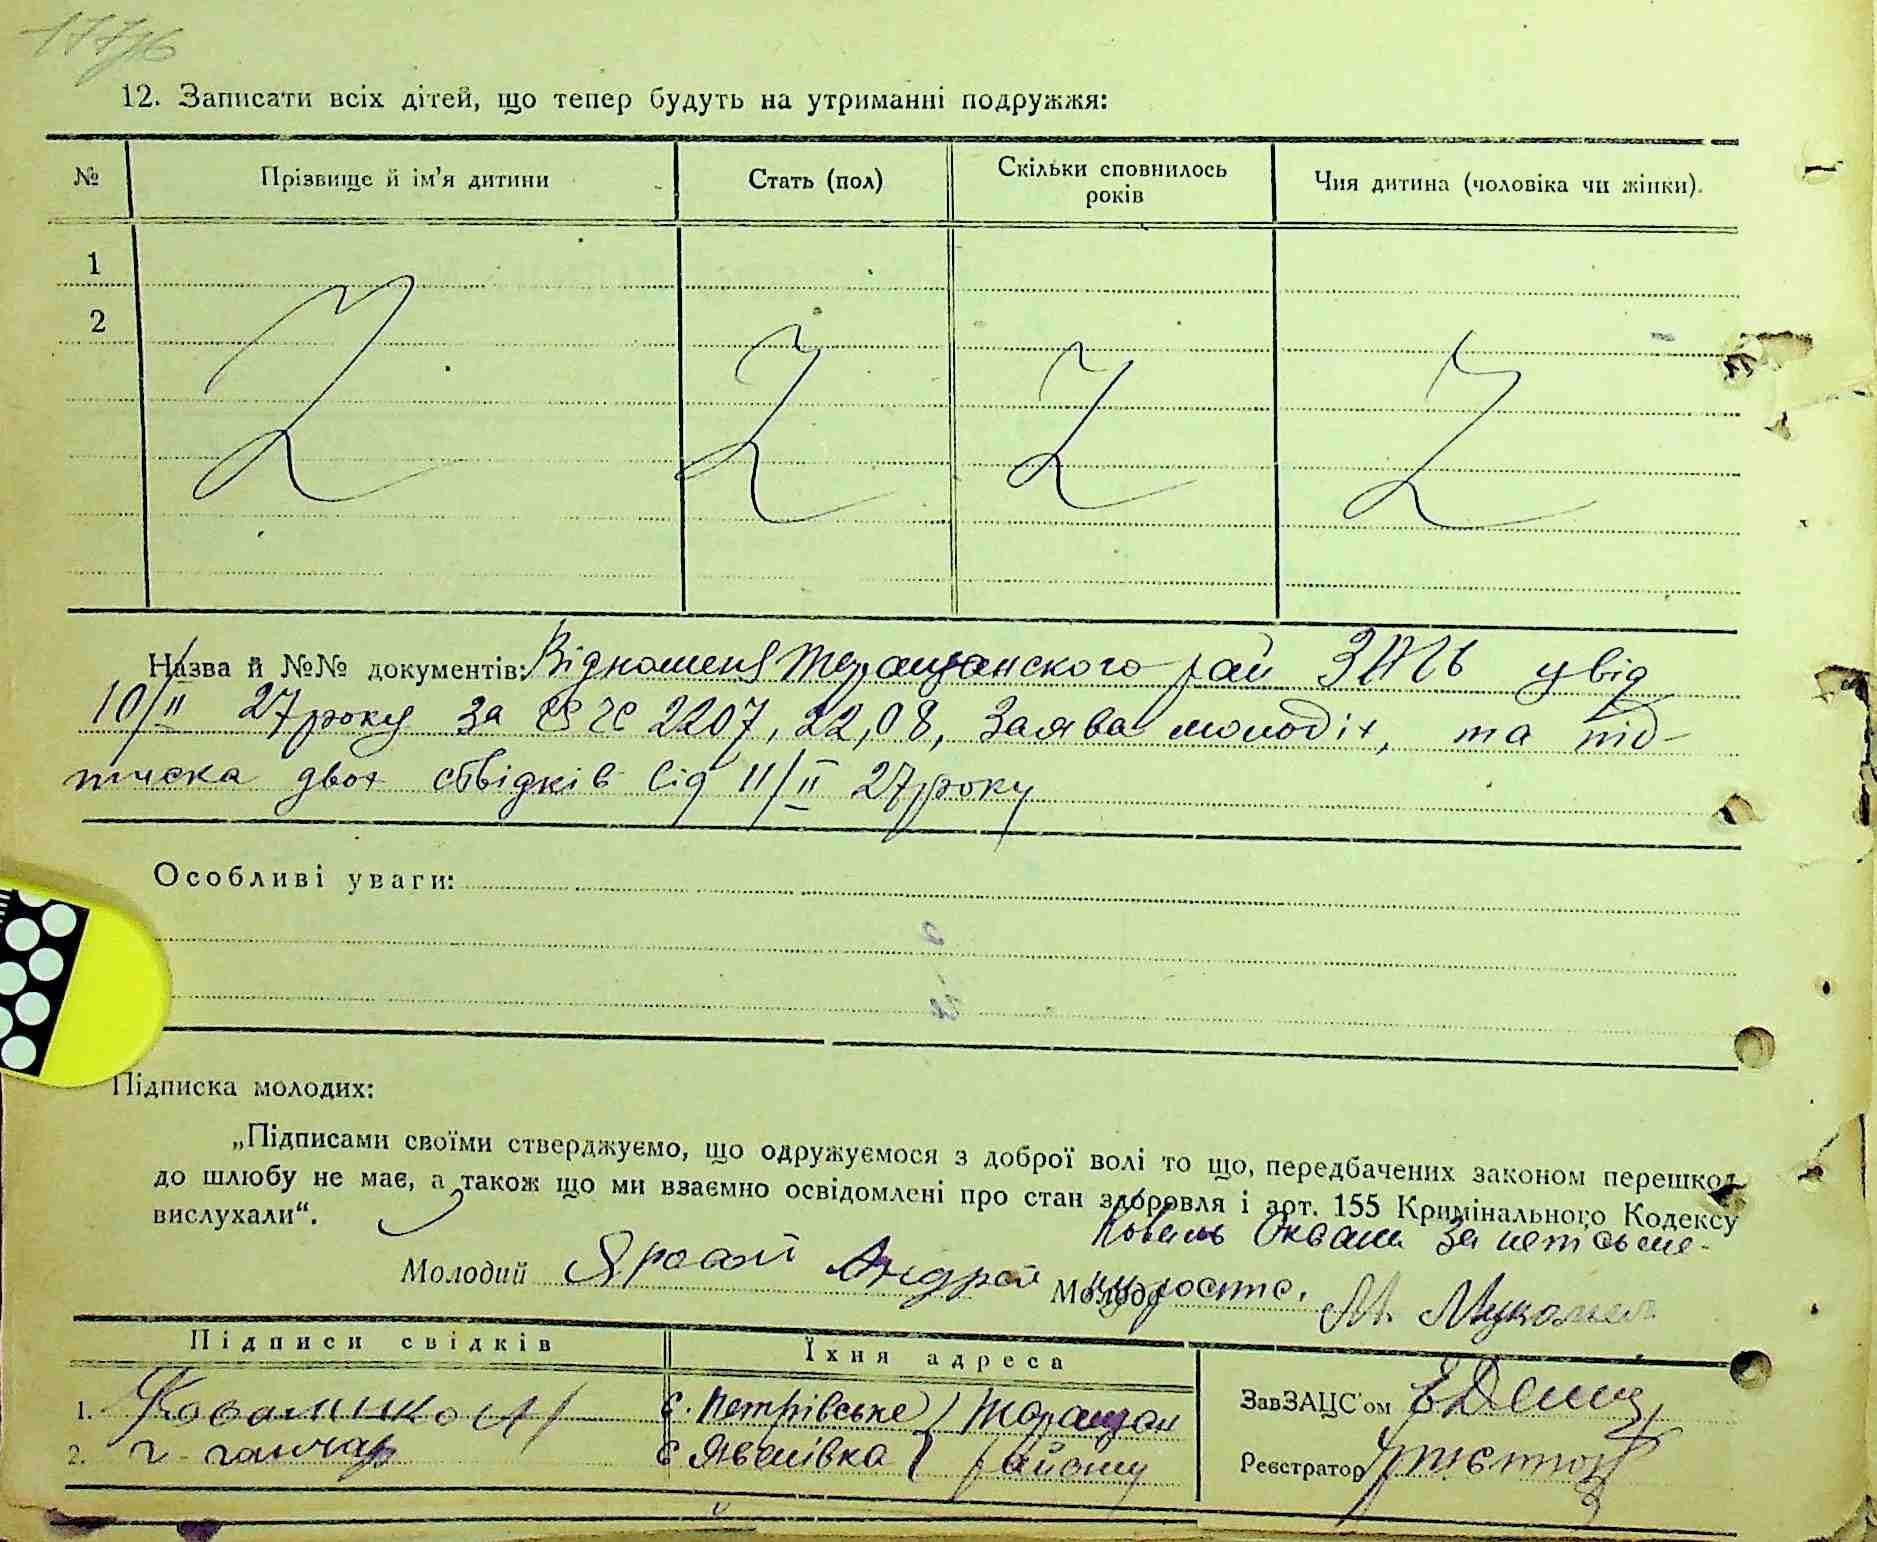 177
12. Записати всіх дітей, що тепер будуть на утриманні подружжя:
№ Прізвище й ім'я дитини Стать (пол) Скільки сповнилось років Чия дитина (чоловіка чи жінки).
1
2
Назва й №№ документів: Відношеня Таращанского рай від
10/II 27 року за 2207, 22,08, Заява молодіх, та під-
писка двох свідків від 11/II 27 року
Особливі уваги:
Підписка молодих:
„Підписами своїми стверджуємо, що одружуємося з доброї волі то що, передбачених законом перешкод
до шлюбу не має, а також що ми взаємно освідомлені про стан здоровля і арт. 155 Кримінального Кодексу
вислухали“.
За
Молодий Яровой Андрей Молода
Підписи свідків Їхня адреса
1. Коваленко с. Петрівське Таращан
ЗавЗАЦС'ом
2. Г. Гончар с району
Реєстратор